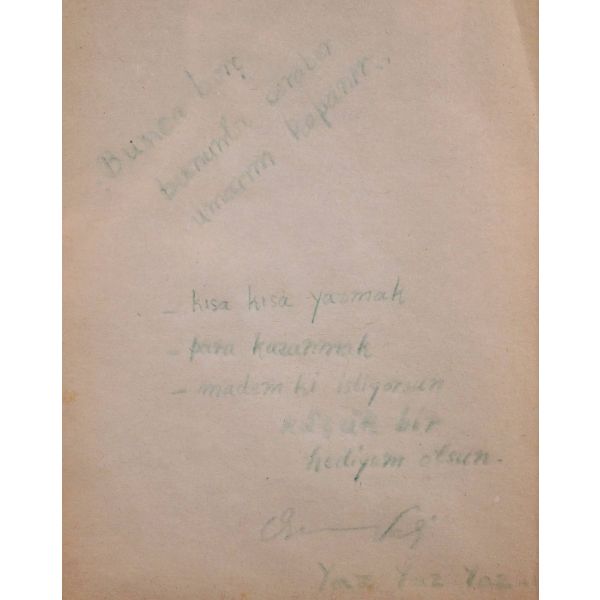 Bunca borç
bununla beraber
umarım kapanır...
- kısa kısa yazmak
- para kazanmak
- madem ki istiyorsun
küçük bir
hediyem olsun.
Yaz Yaz Yaz.